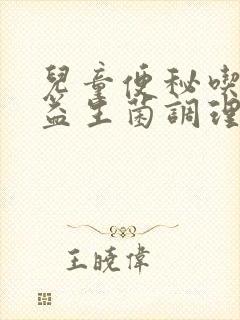 兒童便秘喫
益生菌調理
王曉偉